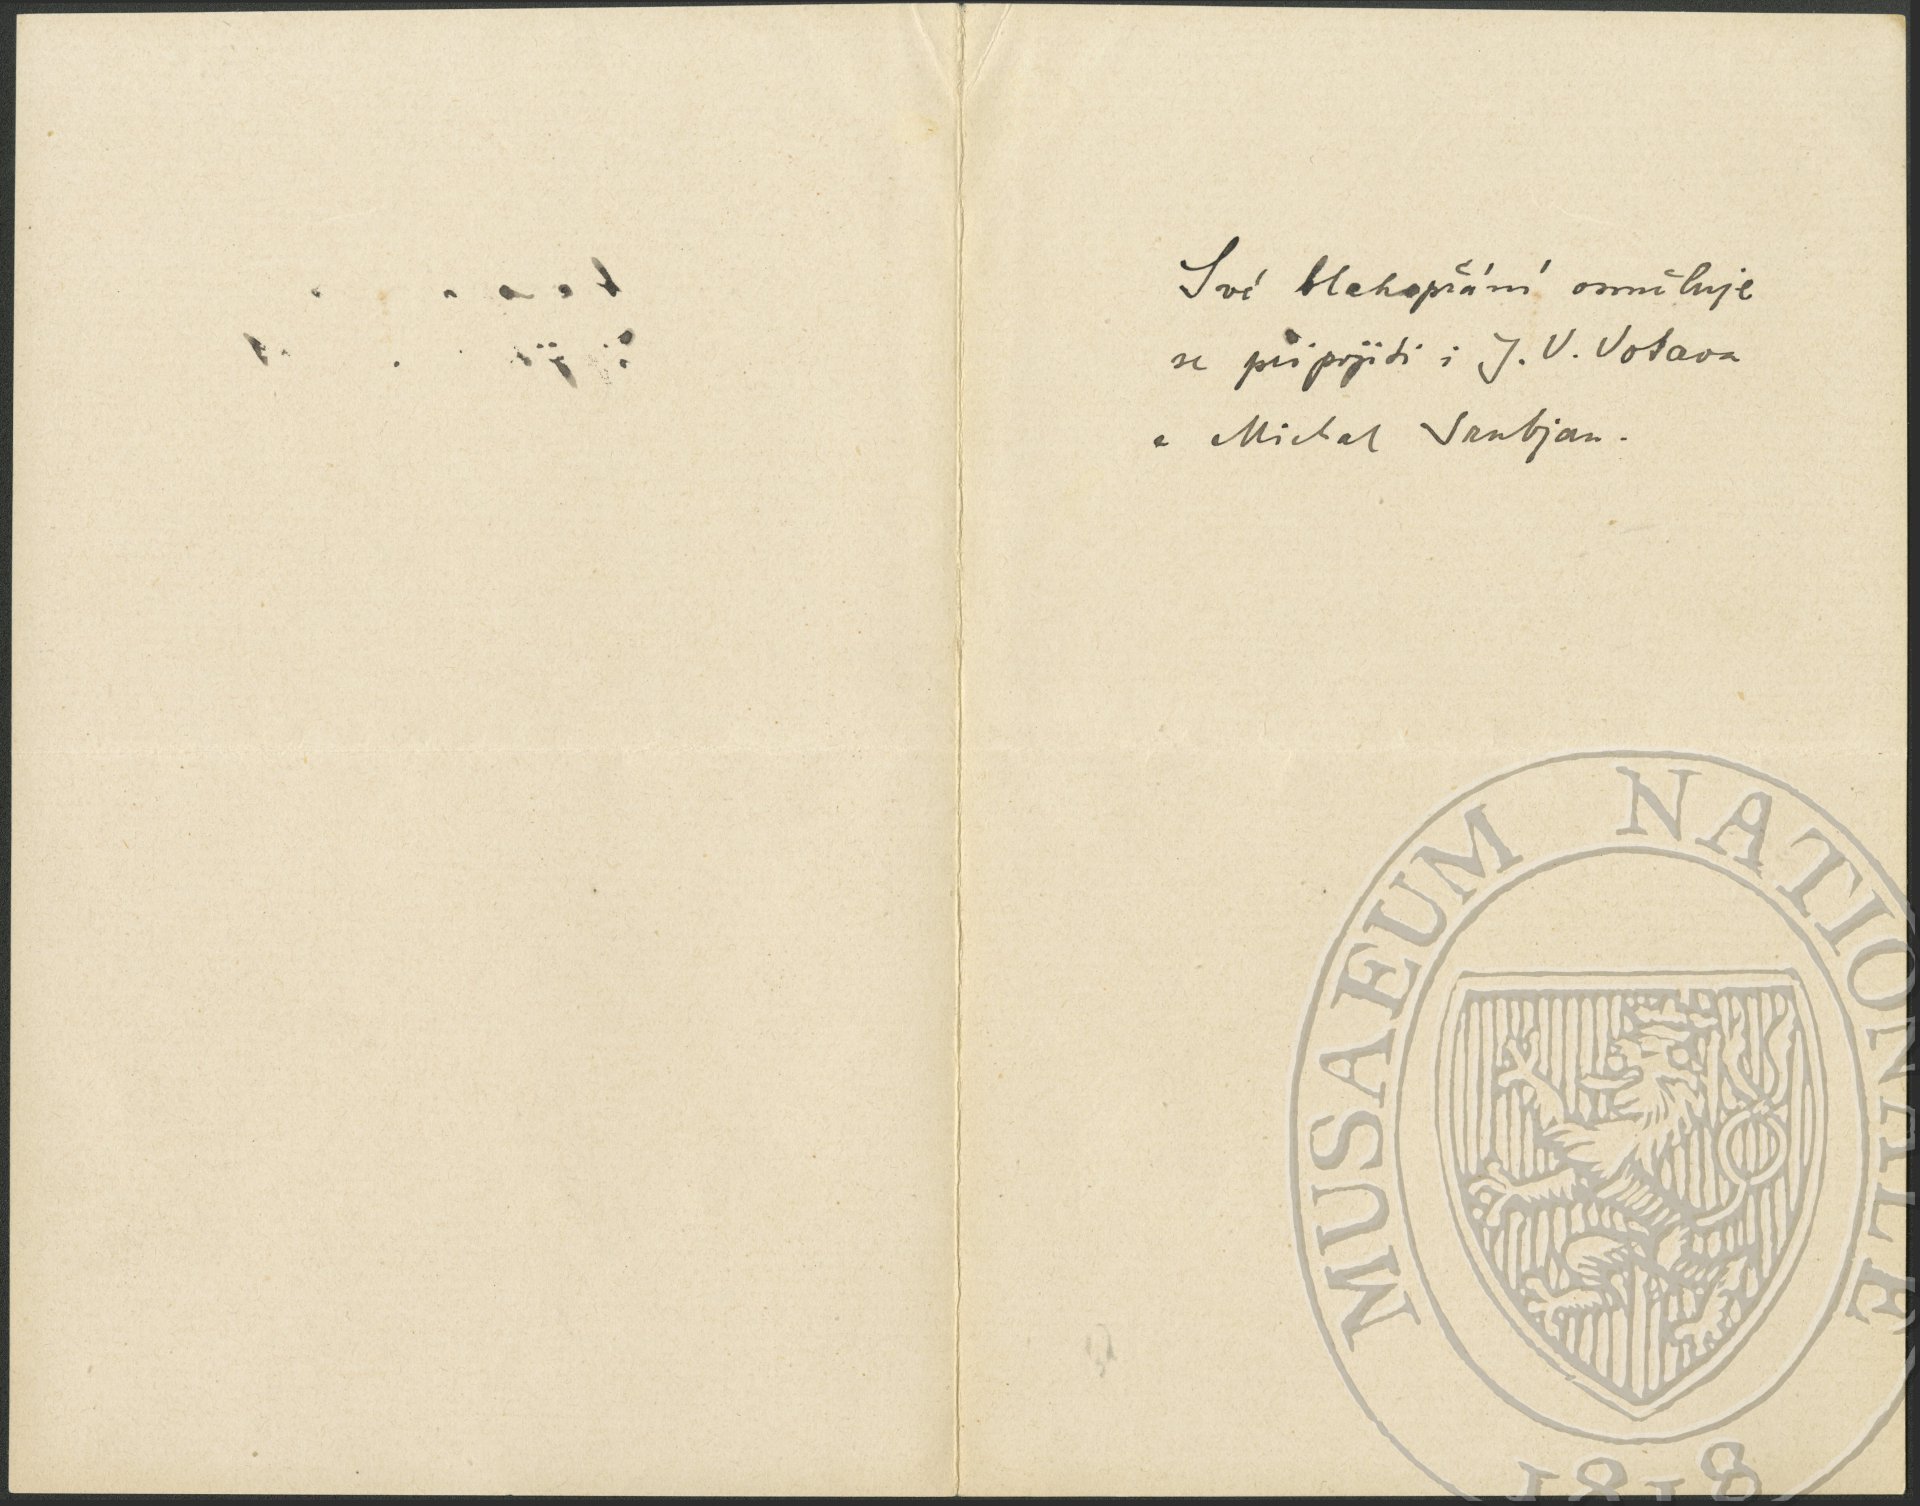 Své blahopřání osměluje
se připojiti i J. V. Votava
a Michal Srubjan.
MUSAEUM NATIONALE
1818